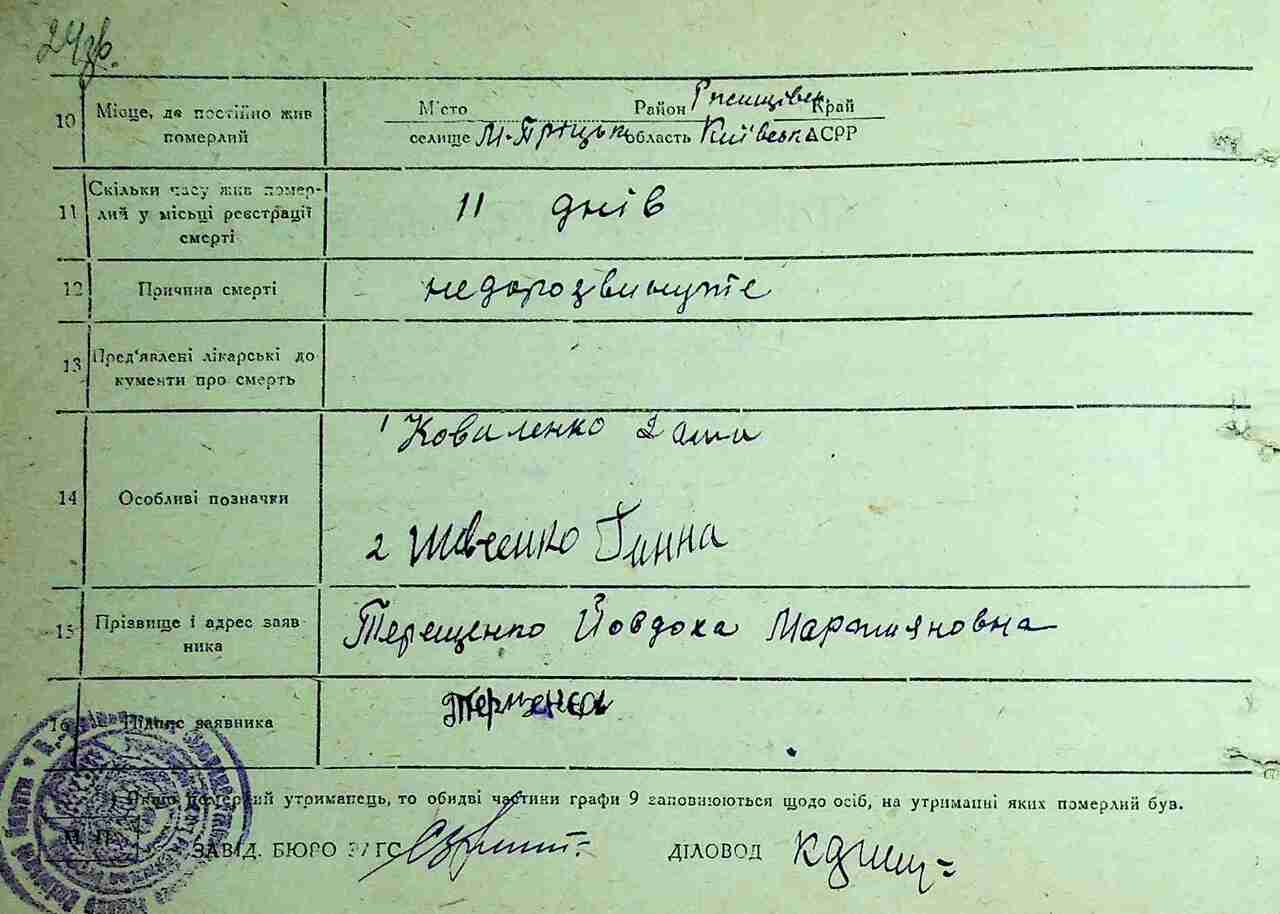 24зв.
10 Місце, де постійно жив померлий
М'сто Район Ржищівськ Край
селище М-Пріцьк область Київська АСРР
11 Скільки часу жив помер-
лий у місьці реєстрації
смерті
11 днів
12 Причина смерті
недорозвинуте
13 Пред'явлені лікарські до
кументи про смерть
14 Особливі позначки
1 Коваленко
2 Шевченко Ганна
15 Прізвище і адрес заяв
ника
Терещенко Йовдоха Мартияновна
16 Підпис заявника
) Якщо померлий утриманець, то обидві частини графи 9 заповнюються щодо осіб, на утриманні яких померлий був.
М. П.
ЗАВІД. БЮРО ЗАГС ДІЛОВОД